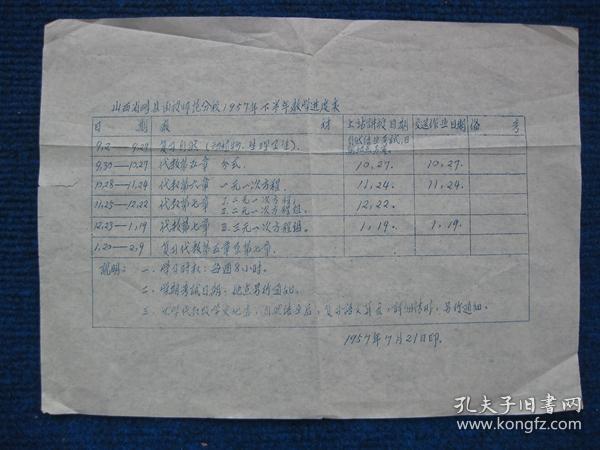 山西省 县函授师范分校1957年下半年教学进度表
日 期 教 材 上站讲授日期 交送作业日期 备 考
9,2 9,29 复习自然(动植物,生理卫生).
9,30—10,27 代数第五章 分式. 10,27. 10,27.
10,28—11,24 代数第六章 一元一次方程. 11,24. 11,24.
11,25—12,22 代数第七章 1.二元一次方程. 2.二元一次方程组. 12,22.
12,23—1,19 代数第七章 3.三元一次方程组. 1,19. 1,19.
1,20—2,9 复习代数第五章至第七章.
说明: 一、学习时数:每周8小时.
二、学期考试日期、地点另行通知.
三、 另行通知.
1957年7月21日印.
孔夫子旧书网
www.kongfz.com